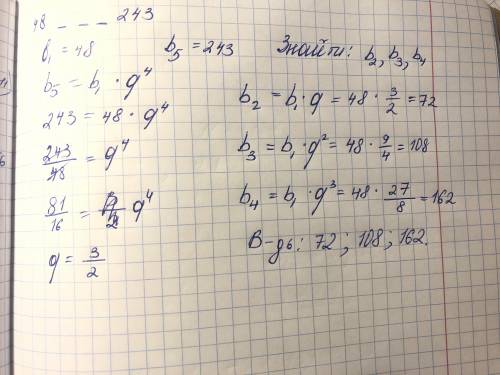 48 _ _ _ 243
b₁ = 48 b₅ = 243 Знайти: b₂, b₃, b₄
b₅ = b₁ · q⁴
243 = 48 · q⁴
243/48 = q⁴
81/16 = q⁴
q = 3/2
b₂ = b₁ · q = 48 · 3/2 = 72
b₃ = b₁ · q² = 48 · 9/4 = 108
b₄ = b₁ · q³ = 48 · 27/8 = 162
В-дь: 72; 108; 162.